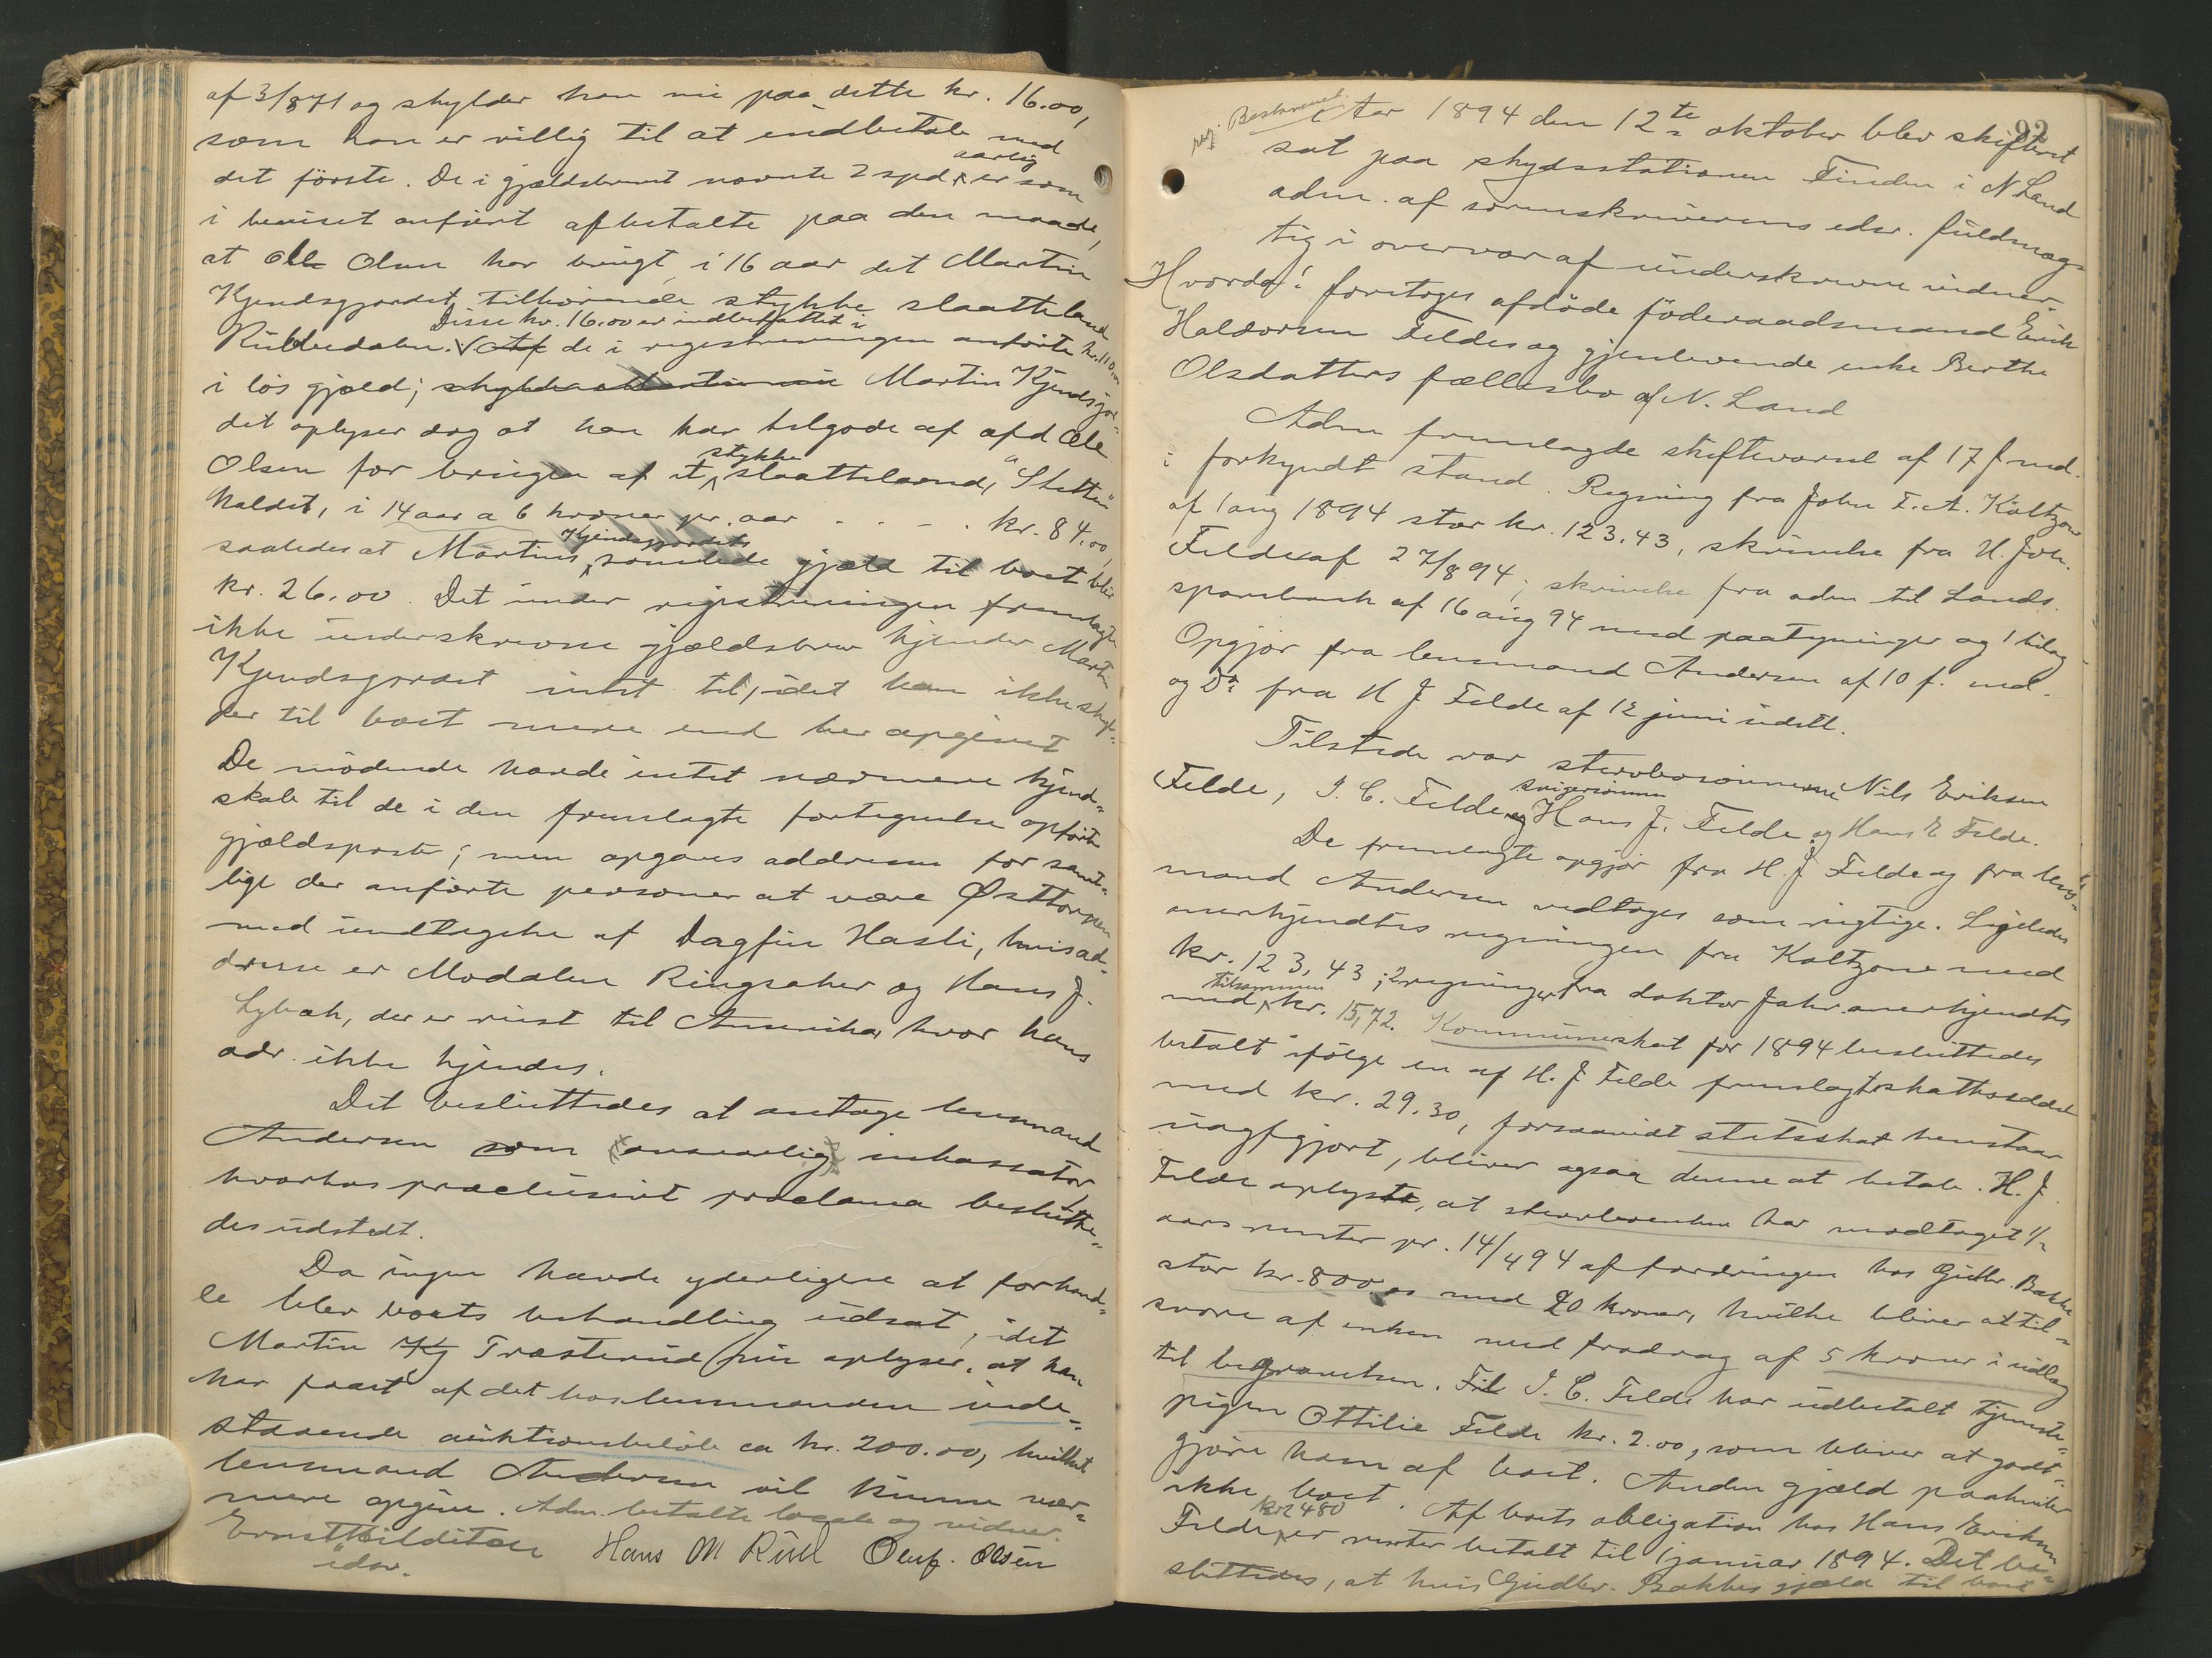 af 3/8 71 og skylder han nu paa dette kr. 16.00,
som han er villig til at indbetale med
det første. De i gjældsbrevet nævnte 2 spd. aarlig er som
i beviset anført afbetalte paa den maade,
at Ole Olsen har brugt i 16 aar det Martin
Kjendsgjordet tilhørende stykke slaatteland
Disse kr. 16.00 er indbefattet i
de i registreringen anførte kr. 110.00
i løs gjæld; Martin Kjendsgjor-
det oplyser dog at han har tilgode af afd Ole
Olsen for brugen af et stykke slaatteland, "Sletten"
kaldet, i 14 aar a 6 kroner pr. aar - - - . kr. 84.00,
saaledes at Martins Kjendsgjordets samlede gjæld til boet blir
kr. 26.00. Det under registreringen fremlagte
ikke underskrevne gjældsbrev kjender Martin
Kjendsgjordet intet til, idet han ikke skyl-
der til boet mere end her opgivet
De mødende havde intet nærmere kjend-
skab til de i den fremlagte fortegnelse opførte
gjældsposter; men opgaves addressen for samt-
lige der anførte personer at være Østtorpen
med undtagelse af Dagfin Hasli, hvis ad-
dresse er Modalen Ringsaker og Hans J.
Lybæk, der er reist til Amerika hvor hans
adr. ikke kjendes.
Det besluttedes at antage lensmand
Andersen som (ansvarlig) inkassator
hvorhos præclusivt proclama beslutte-
des udstedt.
Da ingen havde yderligere at forhand-
le blev boets behandling udsat, idet
Martin Kj Træsterud oplyser, at han
har faaet af det hos lensmanden inde-
staaende auktionsbeløb ca kr. 200.00, hvilket
lensmand Andersen vil kunne nær-
mere opgive. Adm. betalte locale og vidner.
Ernst Hilditch Hans M Rud Oluf. Olsen
edsv.
92
reg. Beskrevet.
Aar 1894 den 12te oktober blev skifteret
sat paa skydsstationen Finden i N Land
adm. af sorenskriverens edsv. fuldmæg-
tig i overvær af underskrevne vidner.
Hvorda! foretoges afdøde føderaadsmand Erik
Haldorsen Feldes og gjenlevende enke Berthe
Olsdatters fællesbo af N. Land
Adm fremlagde skiftevarsel af 17 f. md.
i forkyndt stand. Regning fra John F. A. Koltzow
af 1 aug 1894 stor kr. 123.43, skrivelse fra H. Joh.
Felde af 27/8 94; skrivelse fra adm til Lands
sparebank af 16 aug 94 med paategninger og 1 bilag
Opgjør fra lensmand Andersen af 10 f. md.
og Do fra H J Felde af 12 juni sidstl.
Tilstede var stervbosønnerne Nils Eriksen
Felde, I. C. Felde og svigersønnen Hans J. Felde og Hans E Felde.
De fremlagte opgjør fra H. J Felde og fra lens-
mand Andersen vedtoges som rigtige. Ligeledes
anerkjendtes regningen fra Koltzow med
kr. 123,43; 2 regninger fra doktor Jahr anerkjendtes
med tilsammen kr. 15,72. Kommuneskat for 1894 besluttedes
betalt ifølge en af H. J Felde fremlagt skatteseddel
med kr. 29.30, forsaavidt statsskat henstaar
uafgjort, bliver ogsaa denne at betale. H. J.
Felde oplyste, at stervboenken har modtaget 1/2
aars renter pr. 14/4 94 af fordringen hos Gudbr. Bakke
stor kr. 800.00 med 20 kroner, hvilke bliver at til-
svare af enken med fradrag af 5 kroner i udlæg
til begravelsen. Til I. C. Felde har udbetalt tjeneste-
pigen Ottilie Felde kr. 2.00, som bliver at godt-
gjøre ham af boet. Anden gjæld paahviler
ikke boet. Af boets obligation hos Hans Eriksen
Felde kr 2480 er renter betalt til 1 januar 1894. Det be-
sluttedes, at hvis Gudbr. Bakkes gjæld til boet